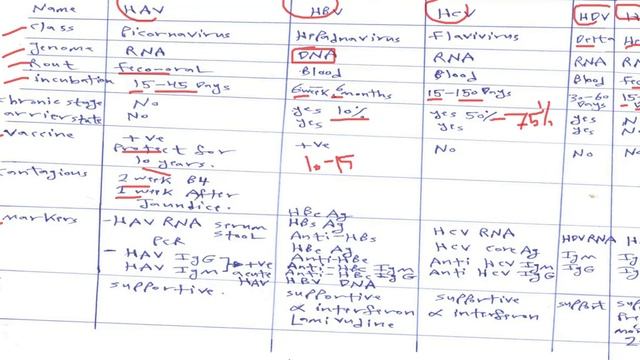 Name HAV HBV HCV HDV H
Class Picornavirus Hepadnavirus Flavivirus Delta He
Jenome RNA DNA RNA RNA RN
Rout feco-oral Blood Blood Blood Fec
incubation 15-45 Days 6week 6months 15-150 Days 30-60 Days 15-
chronic stage No yes 10% yes 50% 75% yes N
carrier state No yes yes No N.
Vaccine +ve +ve No No No
Protect for 10-15
10 years.
Contagious 2 week B4
1 week After
Jaundice.
markers - HAV RNA serum stool HBc Ag HCV RNA HDVRNA H
PCR HBs Ag HCV core Ag IgM I
- HAV IgG +ve Anti-HBs Anti HCV IgM IgG I
HAV IgM acute HAV HBe Ag Anti HCV IgG
Anti-HBe
Anti-HBc IgM
Anti-HBc IgG
HBV DNA
supportive. supportive supportive support sup
α interferon α interferon
Lamivudine